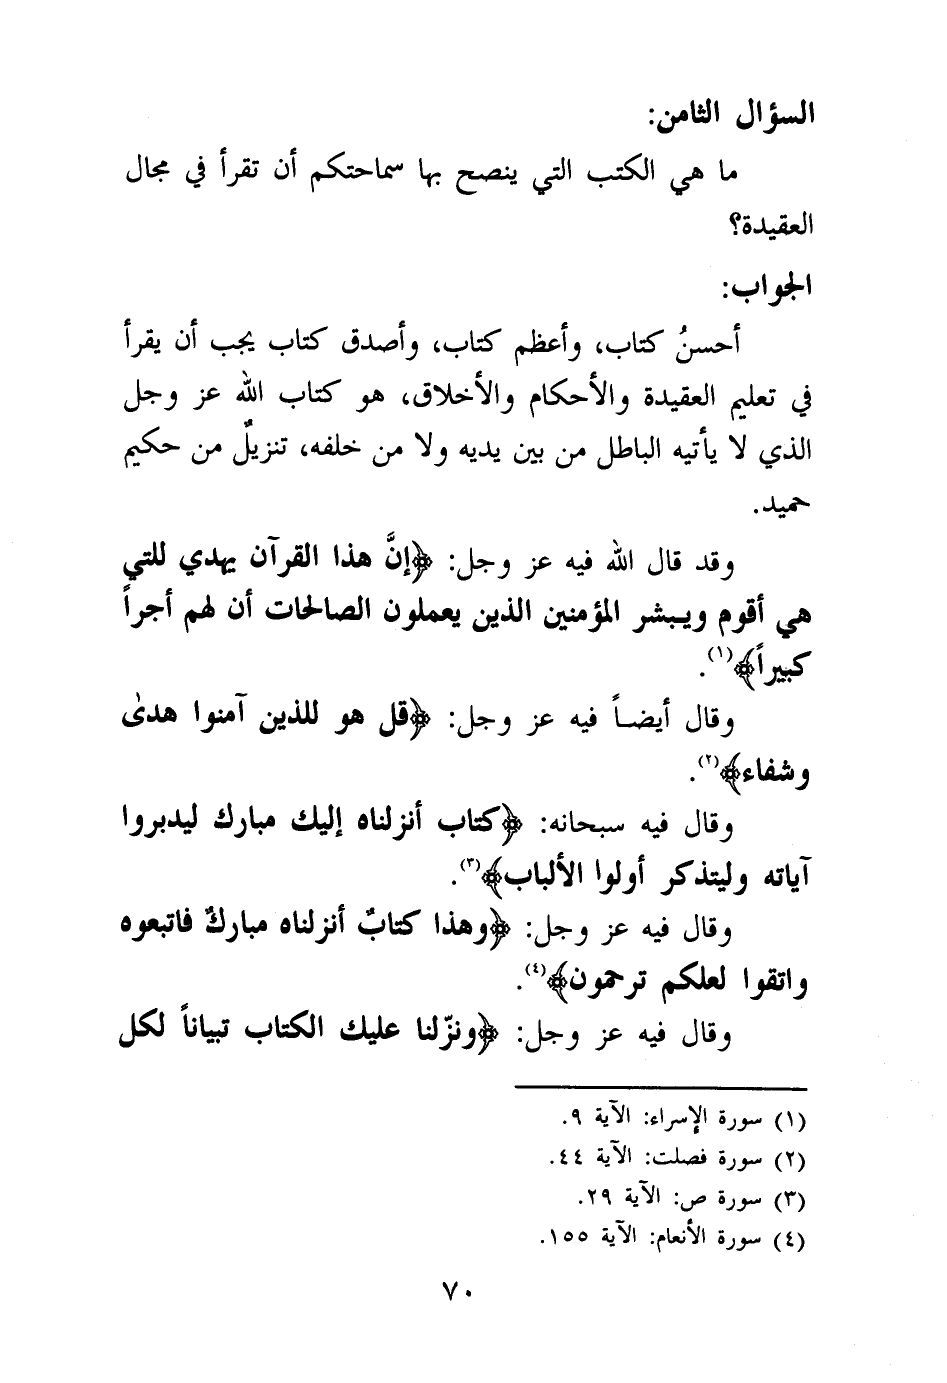 السؤال الثامن:
ما هي الكتب التي ينصح بها سماحتكم أن تقرأ في مجال
العقيدة؟
الجواب:
أحسنُ كتاب، وأعظم كتاب، وأصدق كتاب يجب أن يقرأ
في تعليم العقيدة والأحكام والأخلاق، هو كتاب الله عز وجل
الذي لا يأتيه الباطل من بين يديه ولا من خلفه، تنزيلٌ من حكيم
حميد.
وقد قال الله فيه عز وجل: ﴿إنَّ هذا القرآن يهدي للتي
هي أقوم ويبشر المؤمنين الذين يعملون الصالحات أن لهم أجراً
كبيراً﴾(١).
وقال أيضاً فيه عز وجل: ﴿قل هو للذين آمنوا هدىٰ
وشفاء﴾(٢).
وقال فيه سبحانه: ﴿كتاب أنزلناه إليك مبارك ليدبروا
آياته وليتذكر أولوا الألباب﴾(٣).
وقال فيه عز وجل: ﴿وهذا كتابٌ أنزلناه مباركٌ فاتبعوه
واتقوا لعلكم ترحمون﴾(٤).
وقال فيه عز وجل: ﴿ونزّلنا عليك الكتاب تبياناً لكل
(١) سورة الإسراء: الآية ٩.
(٢) سورة فصلت: الآية ٤٤.
(٣) سورة ص: الآية ٢٩.
(٤) سورة الأنعام: الآية ١٥٥.
٧٠